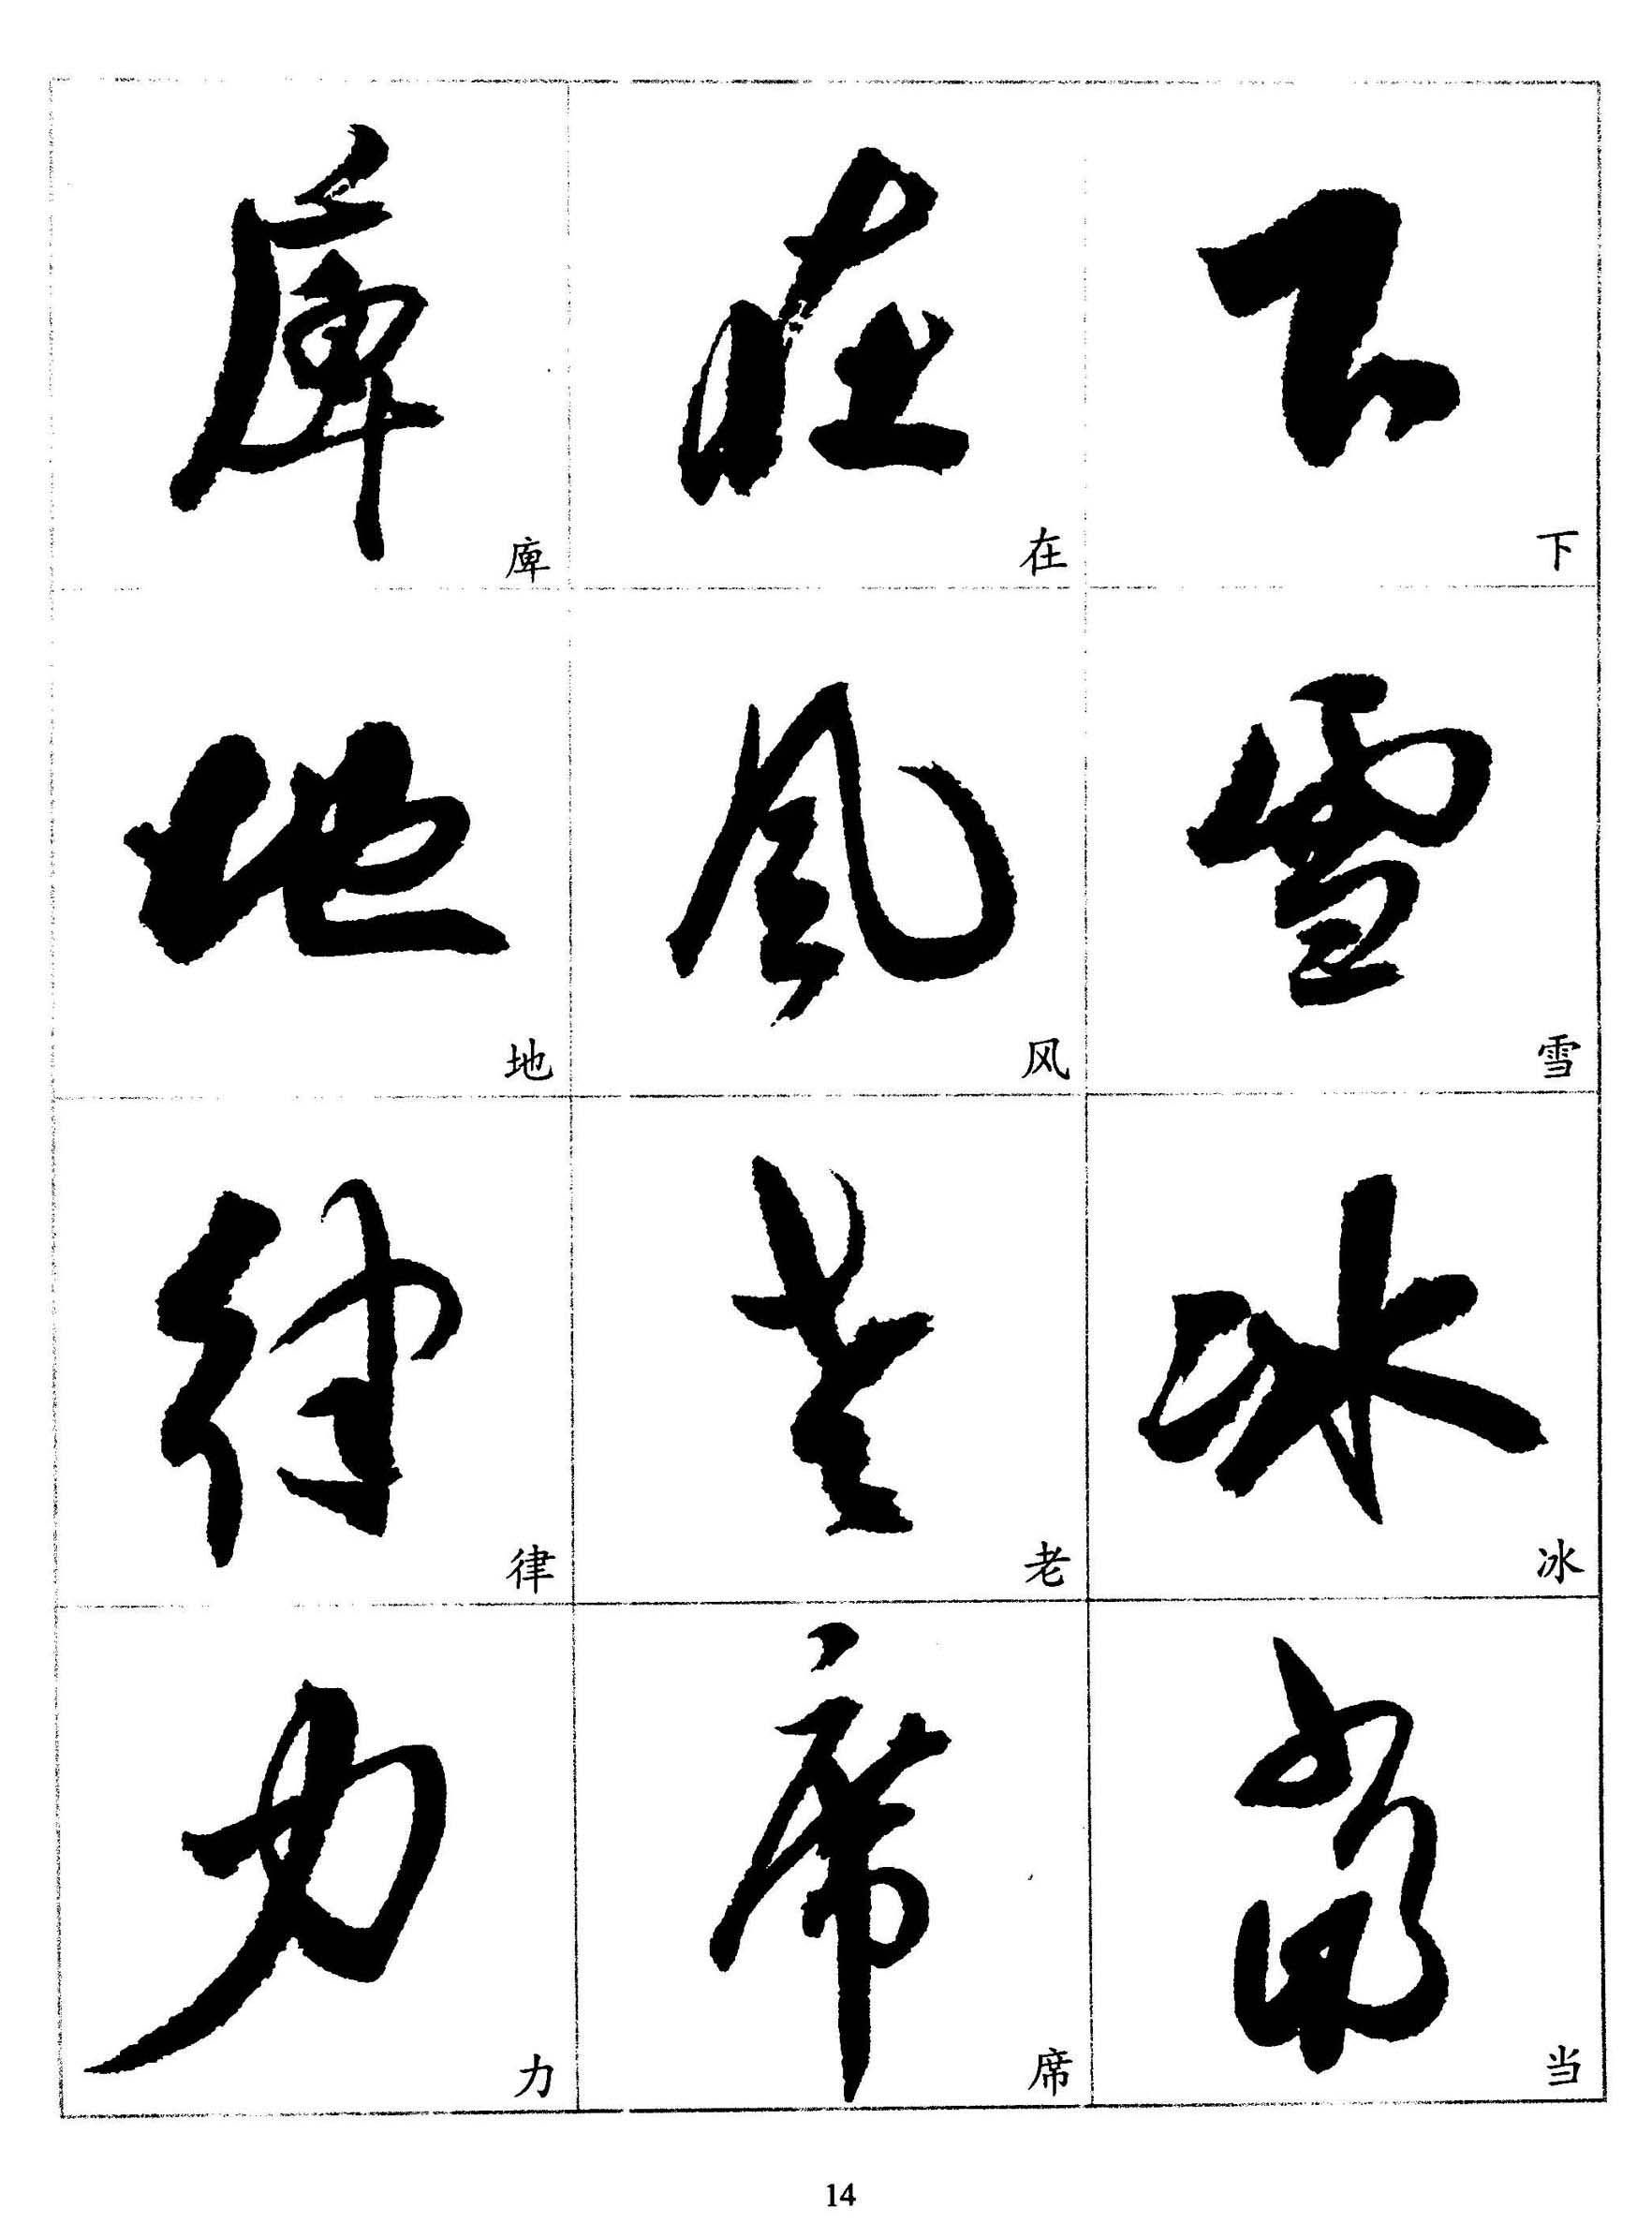 庳 在 下
庳 在 下
地 风 雪
地 风 雪
律 老 冰
律 老 冰
力 席 当
力 席 当
14